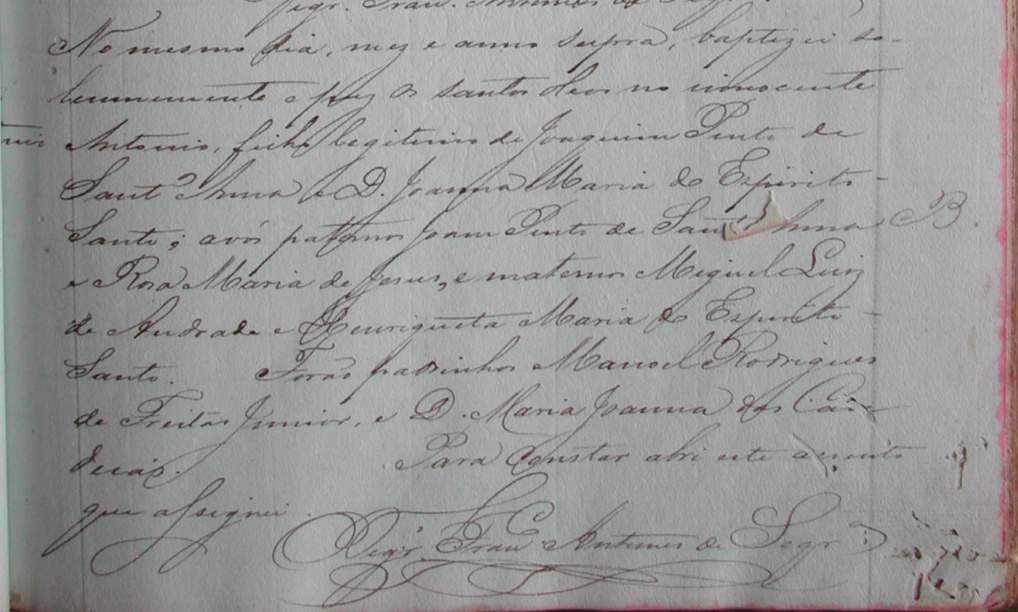 No mesmo dia, mez e anno supra, baptizei so-
lemnemente e puz os santos oleos no innocente
Antonio, filho legitimo de Joaquim Pinto de
Sant'Anna e D. Joanna Maria do Espirito-
Santo; avós paternos Joam Pinto de Sant'Anna B.
e Rosa Maria de Jesus, e maternos Miguel Luiz
de Andrade e Henriqueta Maria do Espirito-
Santo. Forão padrinhos Manoel Rodrigues
de Freitas Junior, e D. Maria Joanna das
Para constar abri este assento
que assignei.
Vigr.º Fran.co Antunes de Segr.ª